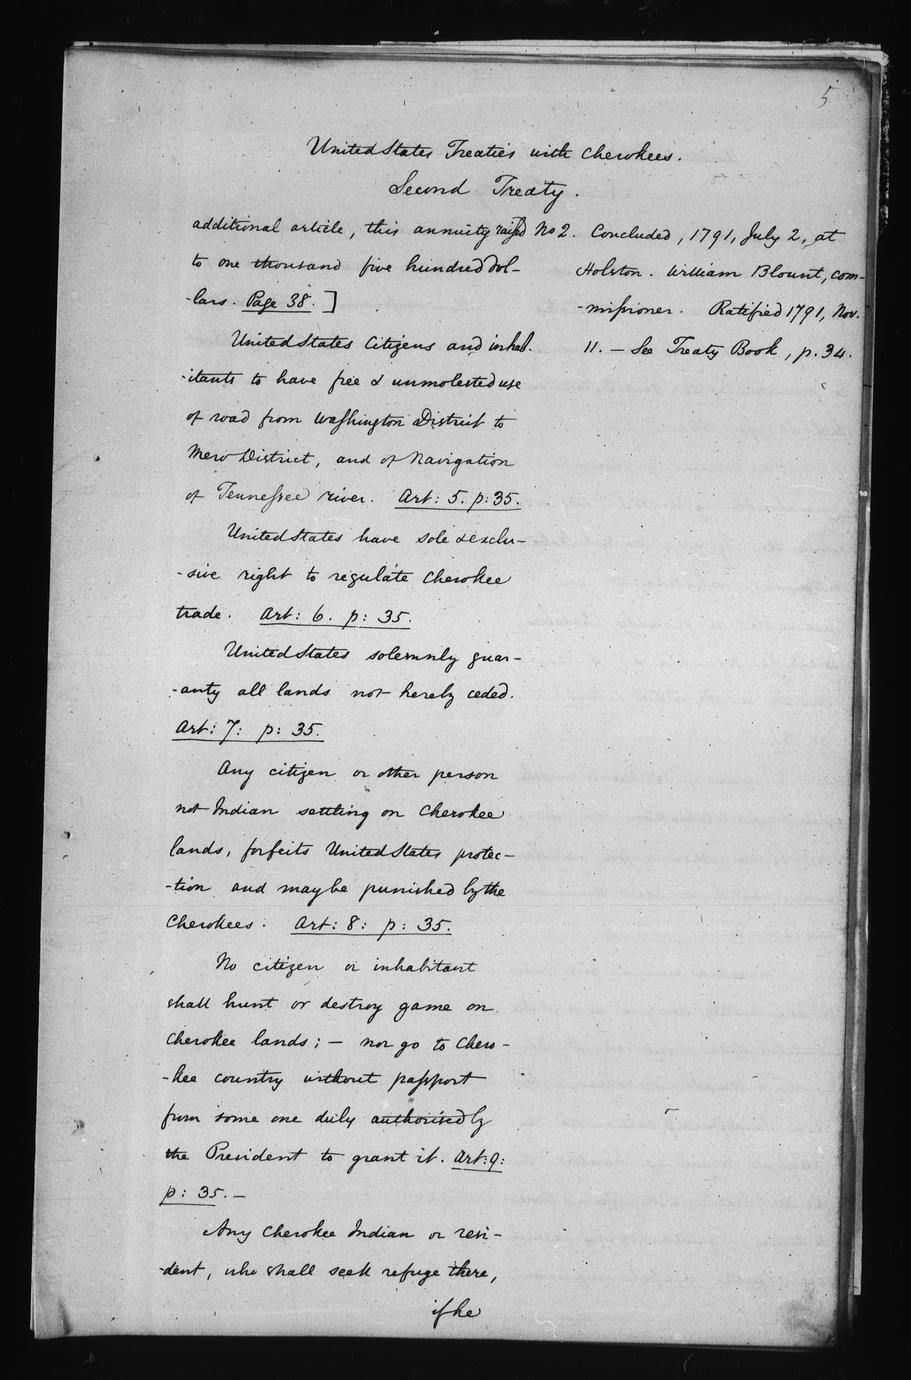 5
United States Treaties with Cherokees.
Second Treaty.
additional article, this annuity raised
to one thousand five hundred dol-
-lars. Page 38.]
United States Citizens and inhab-
-itants to have free & unmolested use
of road from Washington District to
Mero District, and of Navigation
of Tennessee river. Art: 5. p: 35.
United States have sole & exclu-
-sive right to regulate Cherokee
trade. Art: 6. p: 35.
United States solemnly guar-
-anty all lands not hereby ceded.
Art: 7: p: 35.
Any citizen or other person
not Indian settling on Cherokee
lands, forfeits United States protec-
-tion and may be punished by the
Cherokees. Art: 8: p: 35.
No citizen or inhabitant
shall hunt or destroy game on
Cherokee lands; — nor go to Chero-
-kee country without passport
from some one duly authorised by
the President to grant it. Art: 9:
p: 35. —
Any Cherokee Indian or resi-
-dent, who shall seek refuge there,
if he
No 2. Concluded, 1791, July 2, at
Holston. William Blount, com-
-missioner. Ratified 1791, Nov.
11. — See Treaty Book, p. 34.